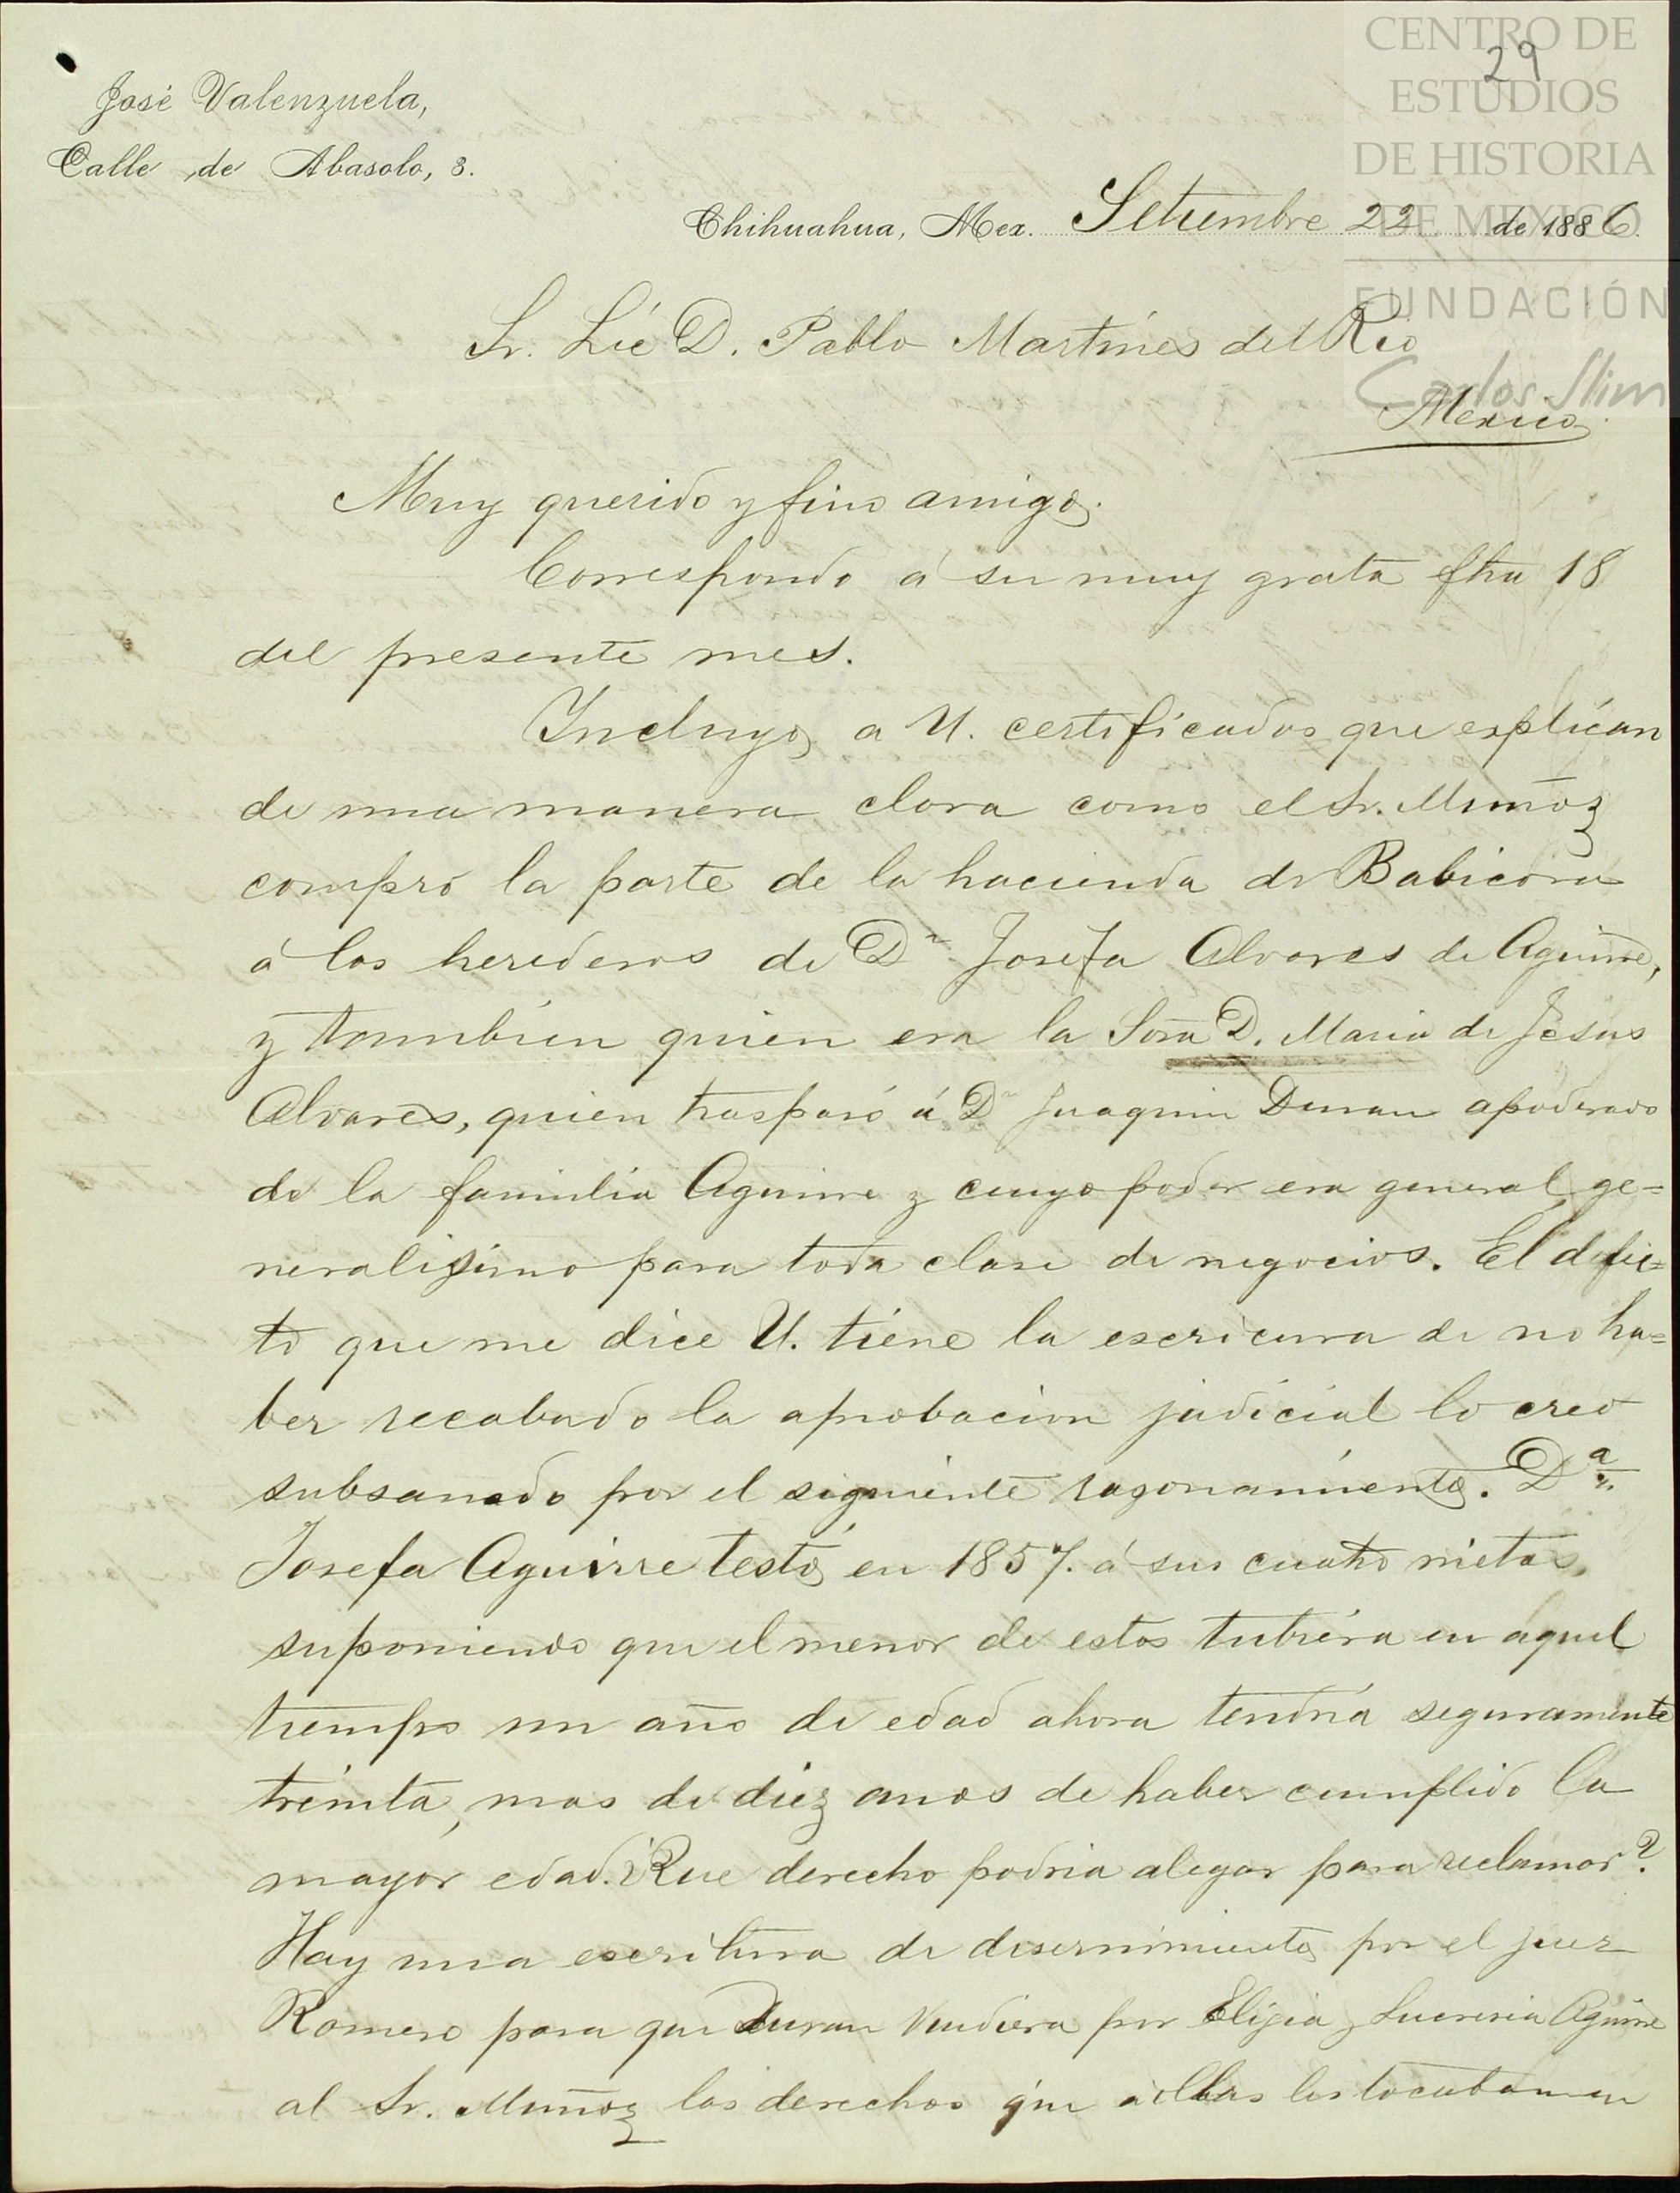 CENTRO DE
29
ESTUDIOS
DE HISTORIA
DE MEXICO
FUNDACIÓN
Carlos Slim
José Valenzuela,
Calle de Abasolo, 3.
Chihuahua, Mex. Setiembre 22 de 1886.
Sr. Lic D. Pablo Martines del Rio
Mexico
Muy querido y fino amigo.
Correspondo á su muy grata fha 18
del presente mes.
Incluyo a U. certificados que esplican
de una manera clara como el Sr. Muñoz
compró la parte de la hacienda de Babicora
á los herederos de Dª Josefa Alvares de Aguirre,
y tambien quien era la Sora D. Maria de Jesus
Alvares, quien traspasó á Dn Juaquin Duran apoderado
de la familia Aguirre y cuyo poder era general ge=
neralisimo para toda clase de negocios. El defec=
to que me dice U. tiene la escricura de no ha=
ber recabado la aprobacion judicial lo creo
subsanado por el siguiente rasonamiento. Dª
Josefa Aguirre testó en 1857. á sus cuatro nietos,
suponiendo que el menor de estos tubiera en aquel
tiempo un año de edad ahora tendria seguramente
treinta, mas de diez anos de haber cumplido la
mayor edad. ¿Que derecho podria alegar para reclamar?
Hay una escritura de disernimiento por el juez
Romero para que Duran vendiera por Eligia y Lucrecia Aguirre
al Sr. Muñoz los derechos que á ellas les tocaban en